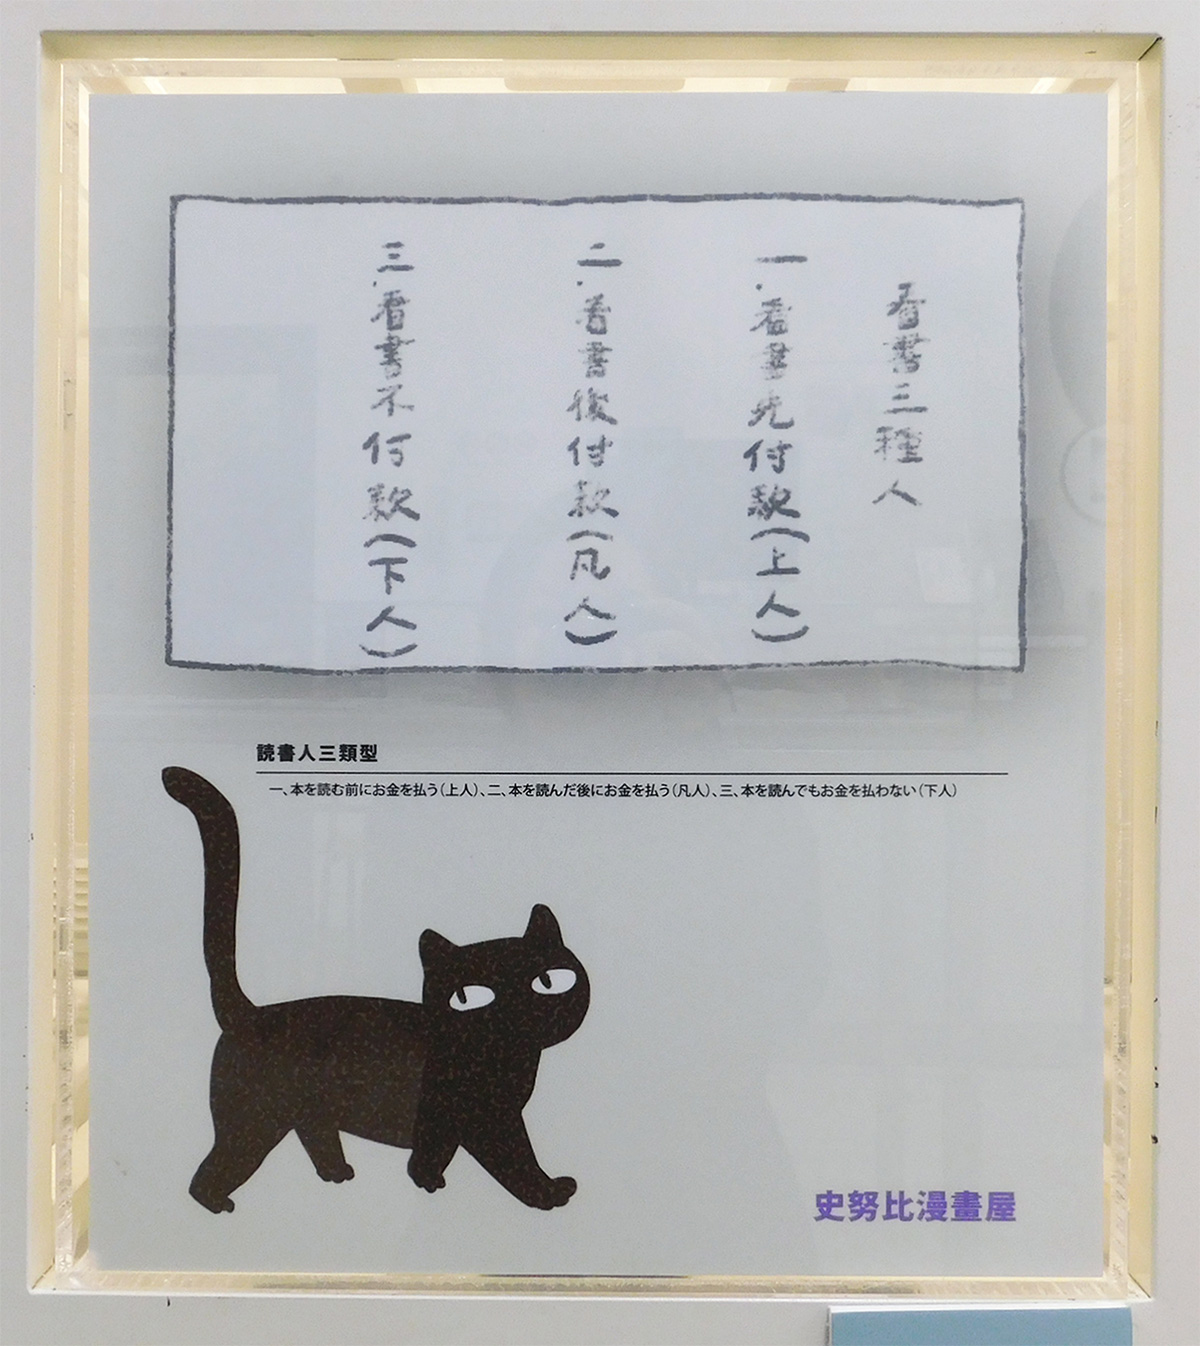 看書三種人
一.看書先付款(上人)
二.看書後付款(凡人)
三.看書不付款(下人)
読書人三類型
一、本を読む前にお金を払う(上人)、二、本を読んだ後にお金を払う(凡人)、三、本を読んでもお金を払わない(下人)
史努比漫畫屋